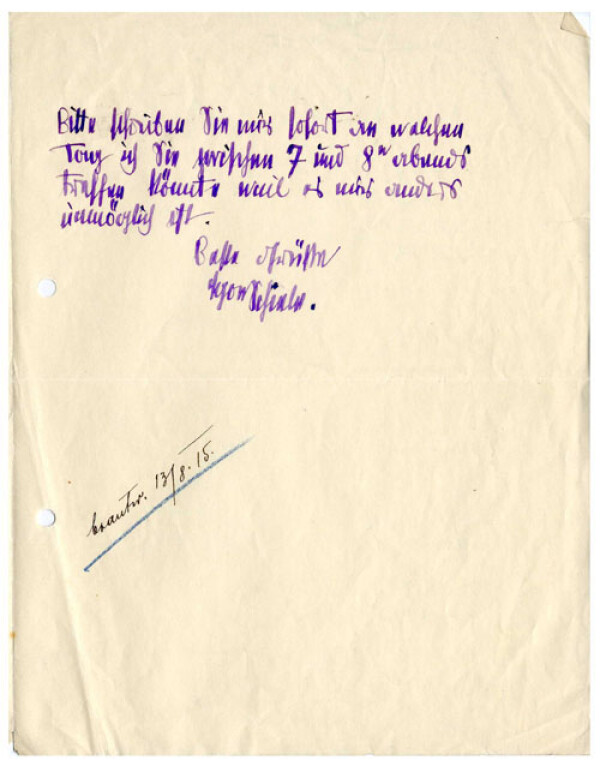 Bitte schreiben Sie mir sofort an welchen
Tag ich Sie zwischen 7 und 8ʰ abends
treffen könnte weil es mir anders
unmöglich ist.
Beste Grüße
Egon Schiele.
beantw. 13/8. 15.